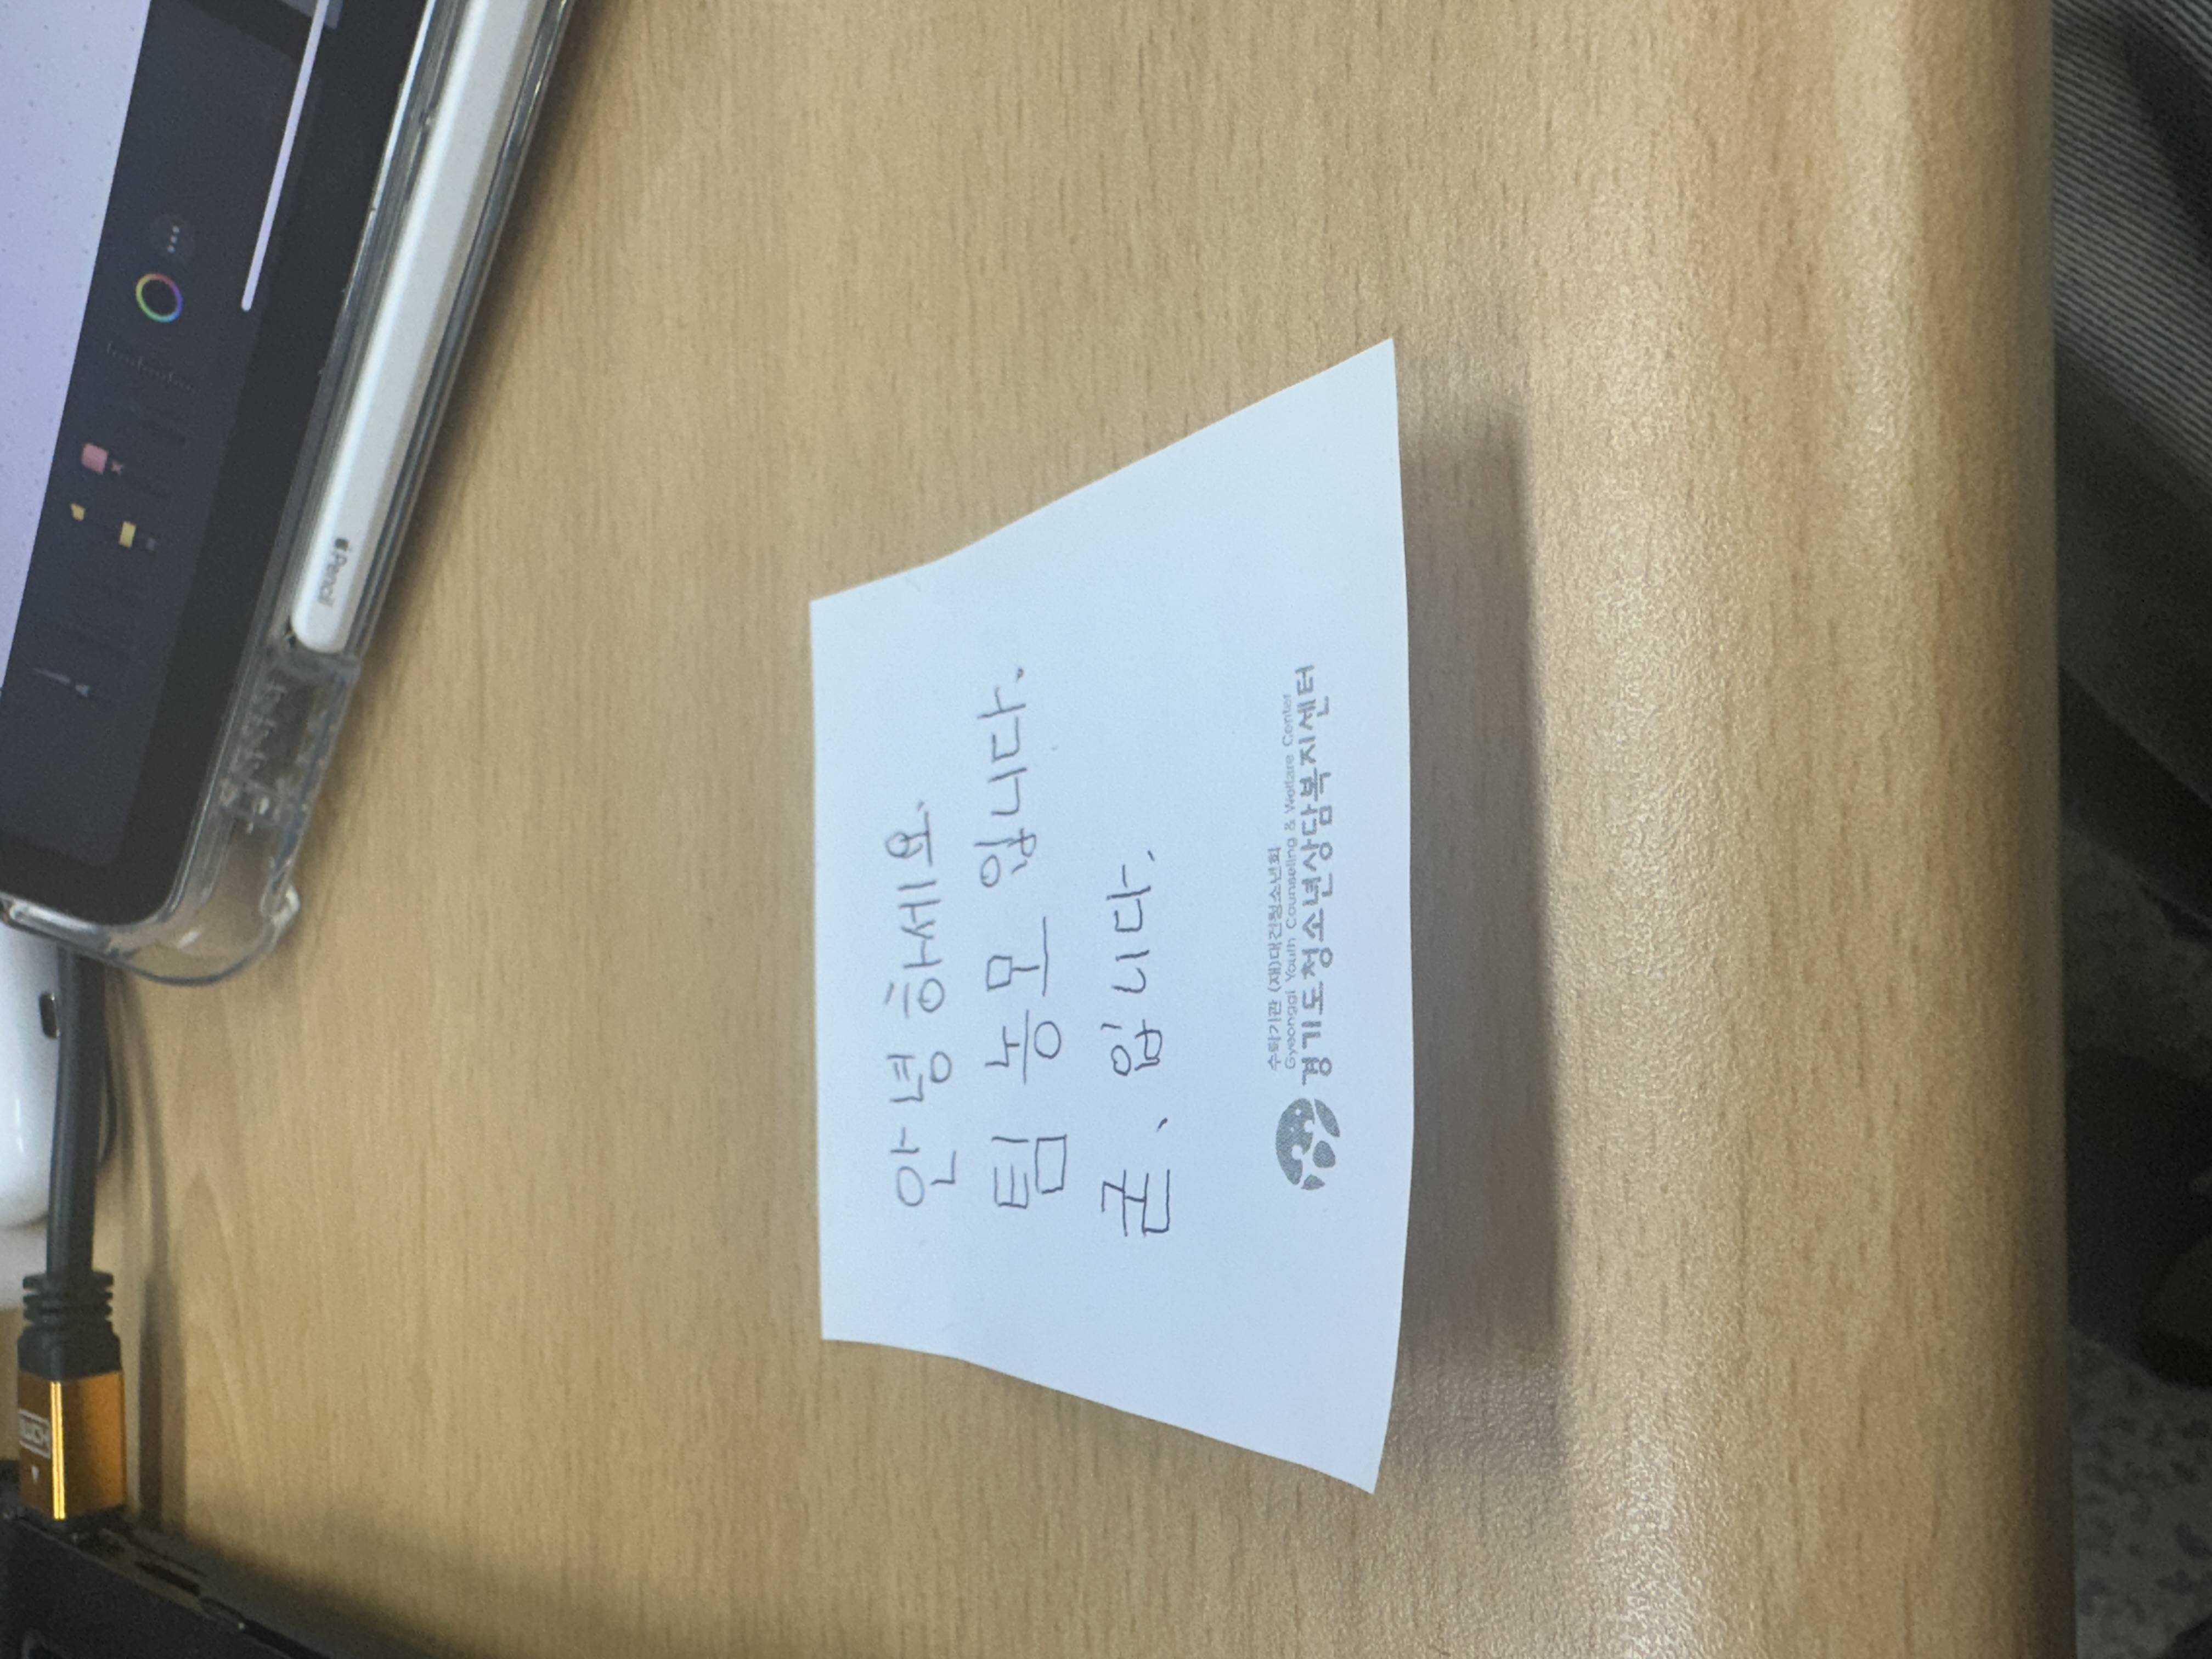 Pencil
안녕하세요.
팀 눙모 입니다.
굳、입니다.
수탁기관 (재)대건청소년회
Gyeonggi Youth Counseling & Welfare Center
경기도청소년상담복지센터